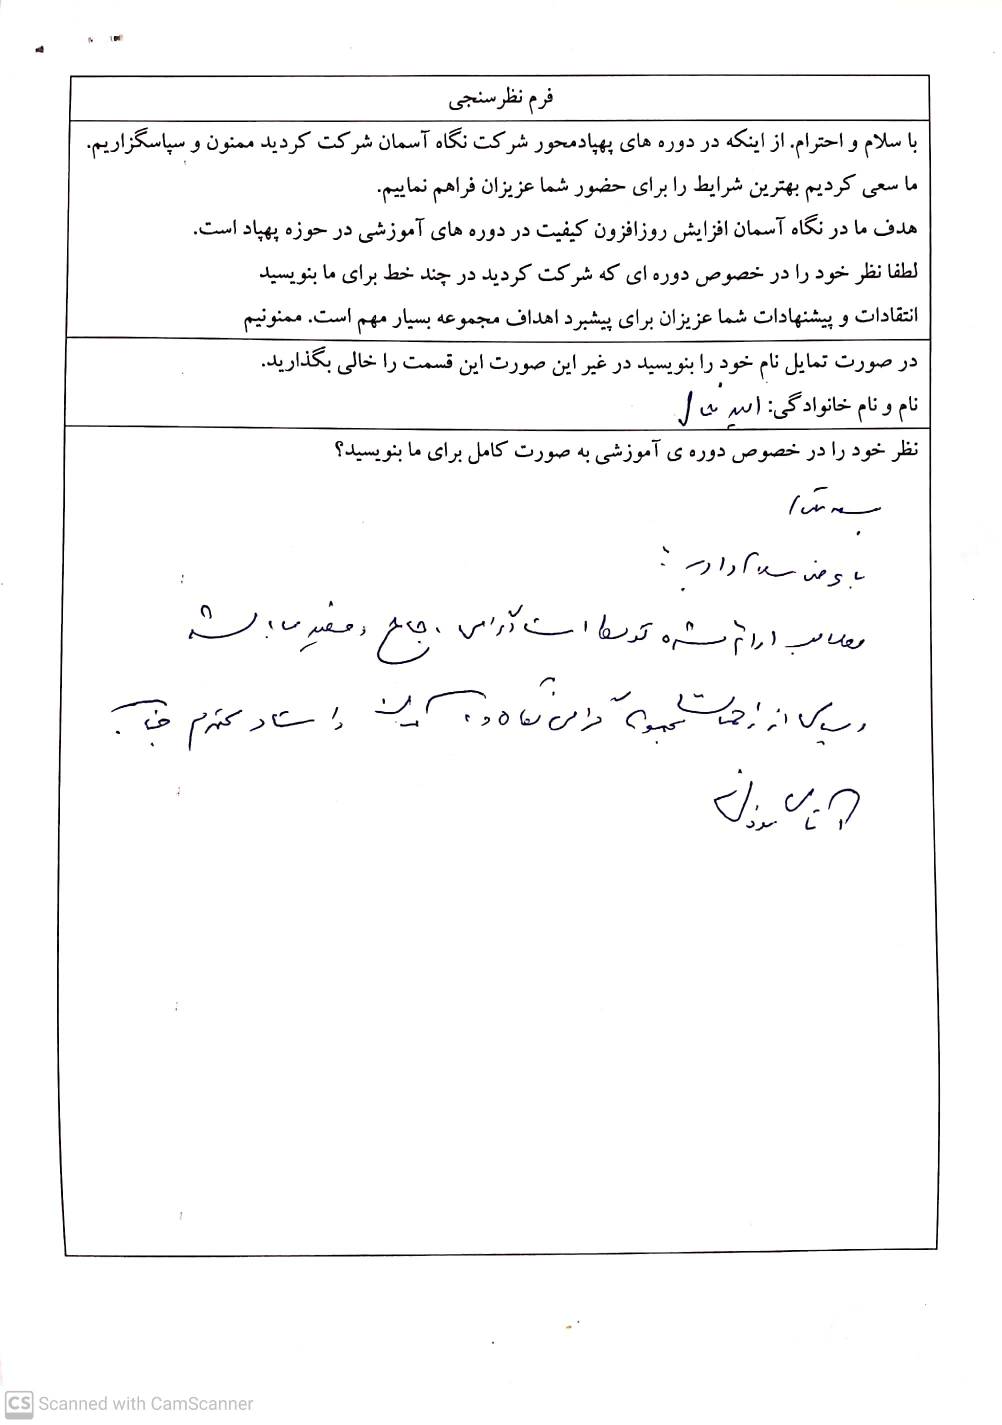 فرم نظرسنجی
با سلام و احترام. از اینکه در دوره های پهپادمحور شرکت نگاه آسمان شرکت کردید ممنون و سپاسگزاریم.
ما سعی کردیم بهترین شرایط را برای حضور شما عزیزان فراهم نماییم.
هدف ما در نگاه آسمان افزایش روزافزون کیفیت در دوره های آموزشی در حوزه پهپاد است.
لطفا نظر خود را در خصوص دوره ای که شرکت کردید در چند خط برای ما بنویسید
انتقادات و پیشنهادات شما عزیزان برای پیشبرد اهداف مجموعه بسیار مهم است. ممنونیم
در صورت تمایل نام خود را بنویسید در غیر این صورت این قسمت را خالی بگذارید.
نام و نام خانوادگی:
نظر خود را در خصوص دوره ی آموزشی به صورت کامل برای ما بنویسید؟
با عرض سلام و ادب:
مطالب ارائه شده توسط استاد گرامی، جامع و مفید
و سپاس از زحمات مجموعه گرامی نگاه و استاد محترم جناب
آقای
CS Scanned with CamScanner